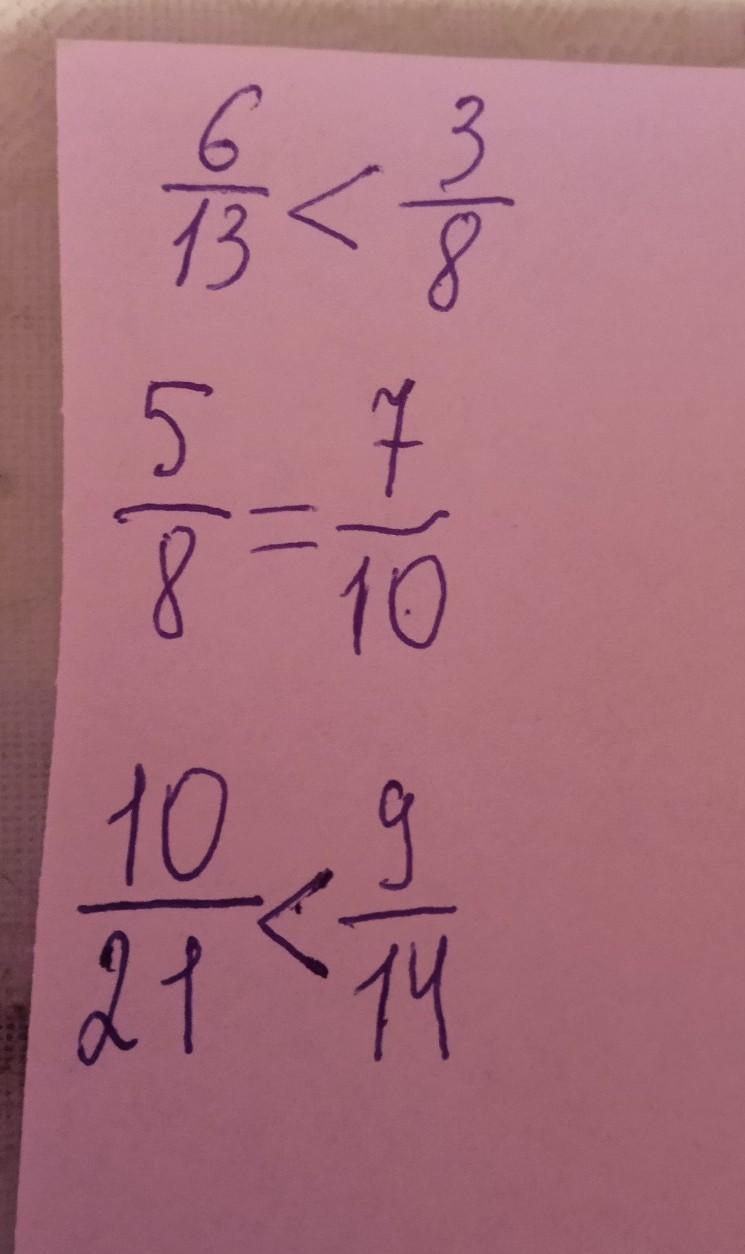 6/13 < 3/8
5/8 = 7/10
10/21 < 9/14